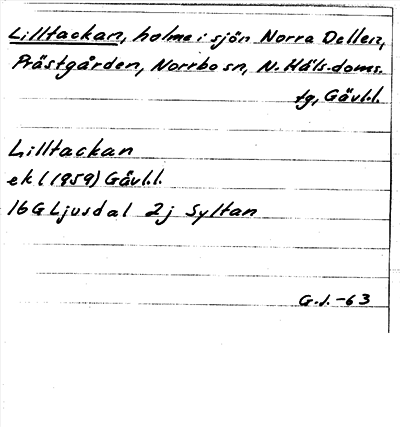 Lilltackan, holme i sjön Norra Dellen,
Prästgården, Norrbo sn, N. Häls. doms.
tg, Gävl.l.
Lilltackan
ek (1959) Gävl.l.
16G Ljusdal 2j Syltan
G.J.-63